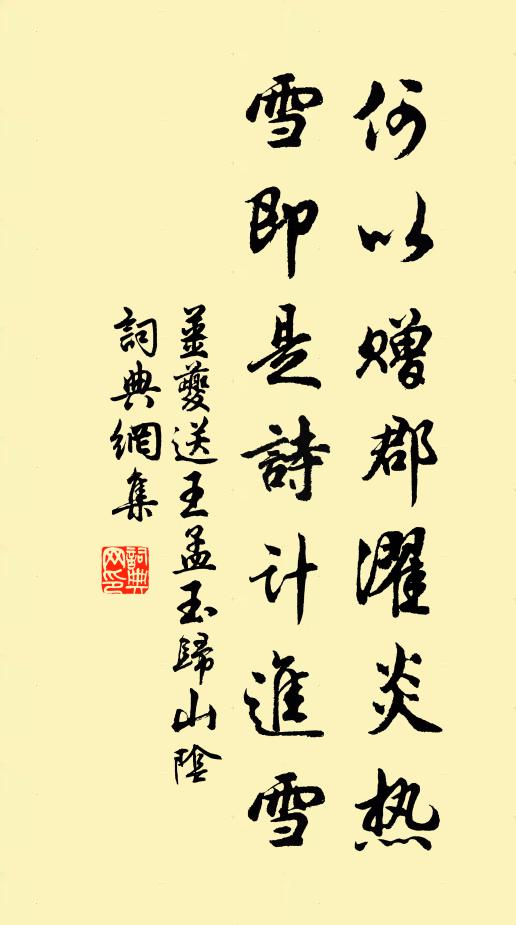 何以赠郡濯炎热
雪即是詩计進雪
姜夔送王孟玉歸山陰
詞典網集
詞典网印